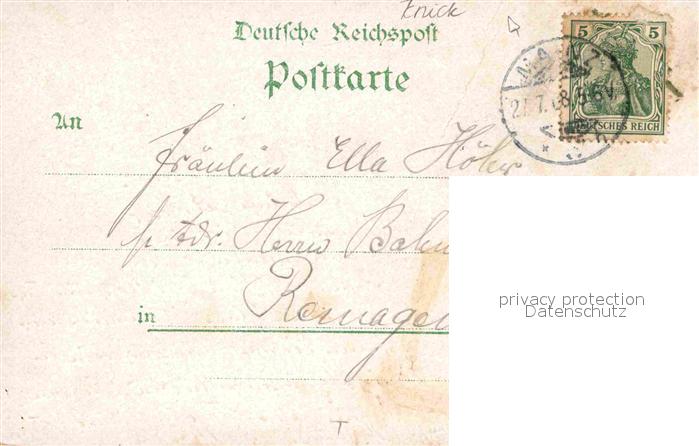 Knick
Deutsche Reichspost
Postkarte
5 5
MAINZ
27.7.08. 5-6V
DEUTSCHES REICH
An
Fräulein Ella Höhr
p. Adr. Herrn Bahn
in Remagen
privacy protection
Datenschutz
T